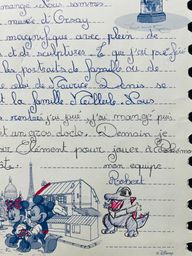 mangé. Nous sommes
musée d'Orsay
magnifique avec plein de
et de sculptures. Ce que j'ai préféré
les portraits de famille ou de
de Maurice Denis
et la famille Nous
rentrés j'ai joué j'ai mangé puis
et un gros dodo. Demain je
Clément pour jouer à
mon équipe
Robert
© Disney